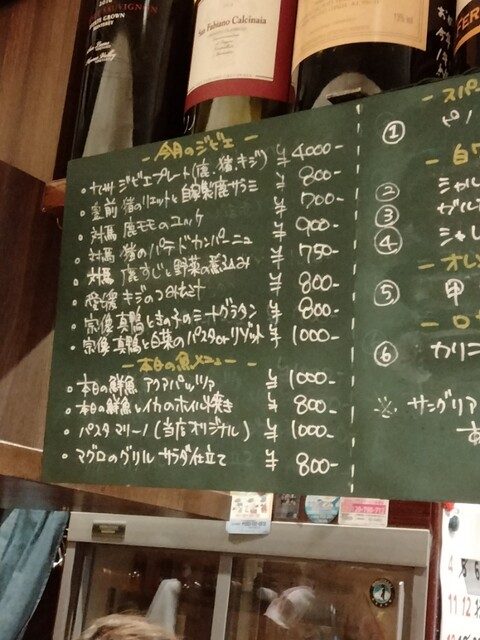 San Fabiano Calcinaia
－今月のジビエ－
・九州 ジビエプレート(鹿、猪、キジ) ¥4000-
・豊前 猪のリエットと自家製鹿サラミ ¥800-
・対馬 鹿モモのユッケ ¥700-
・対馬 猪のパテドカンパーニュ ¥900-
・対馬 鹿すじと野菜の煮込み ¥750-
・愛媛 キジのつみれ汁 ¥800-
・宗像 真鴨ときの子のミートグラタン ¥800-
・宗像 真鴨と白菜のパスタorリゾット ¥1000-
－本日の魚メニュー－
・本日の鮮魚 アクアパッツァ ¥1000-
・本日の鮮魚とイカのホイル焼き ¥800-
・パスタマリーノ(当店オリジナル) ¥1000-
・マグロのグリル サラダ仕立て ¥800-
－スパー
①
ピノ
－白ワ
② シャル
③
④ シャレ
－オレン
⑤ 甲
－ロ
⑥ カリニ
※ サングリア
4 5 6
11 12